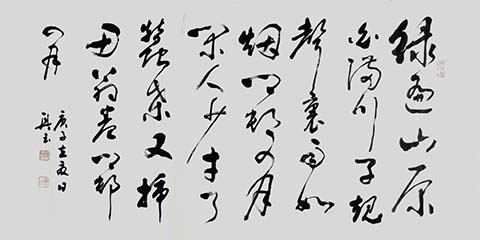 绿遍山原
白满川子规
聲裏雨如
烟乡邨四月
闲人少才了
蠶桑又插
田翁卷乡邨
四月
庚子立夏日